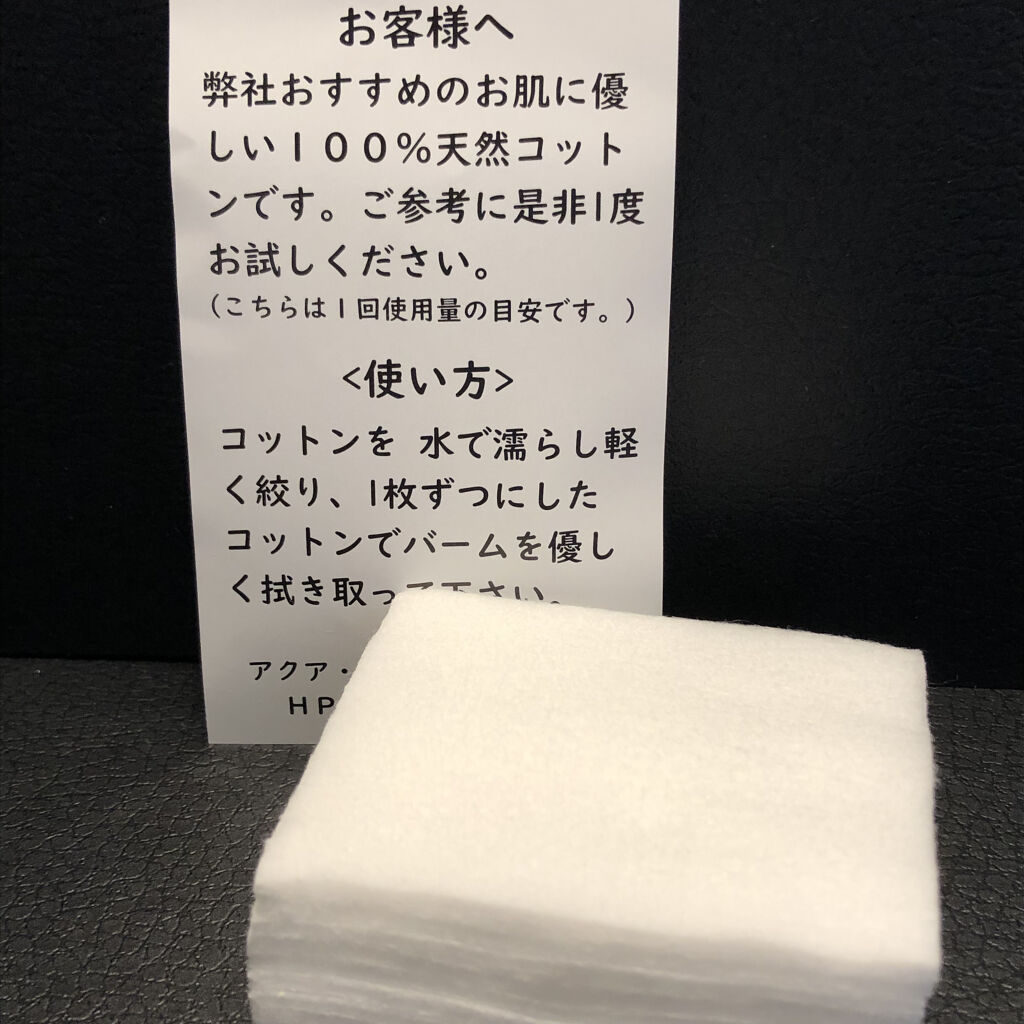 お客様へ
弊社おすすめのお肌に優
しい100%天然コット
ンです。ご参考に是非1度
お試しください。
(こちらは1回使用量の目安です。)
<使い方>
コットンを 水で濡らし軽
く絞り、1枚ずつにした
コットンでバームを優し
く拭き取って下さい。
アクア・
HP